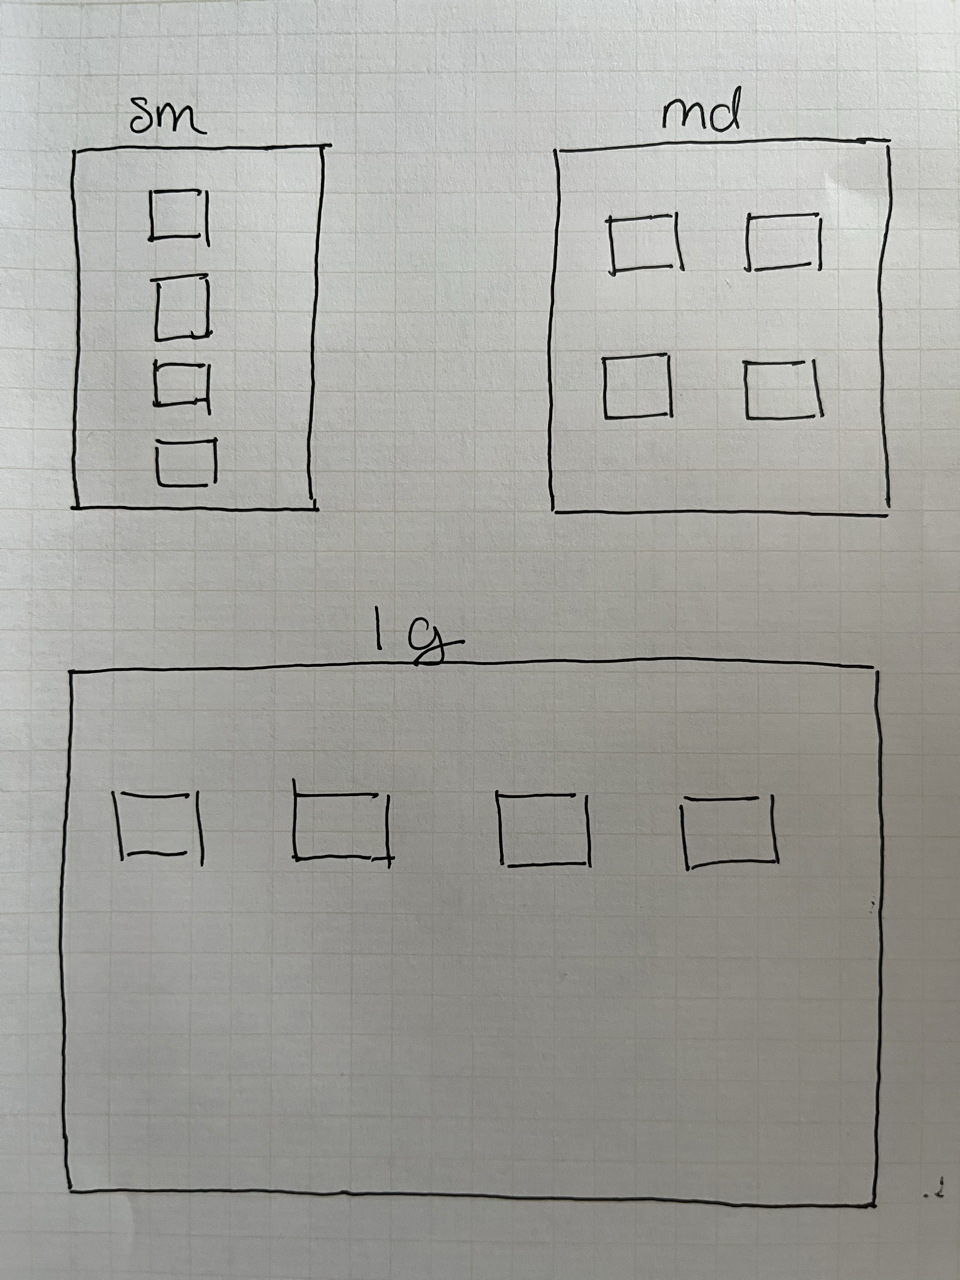 sm
md
lg